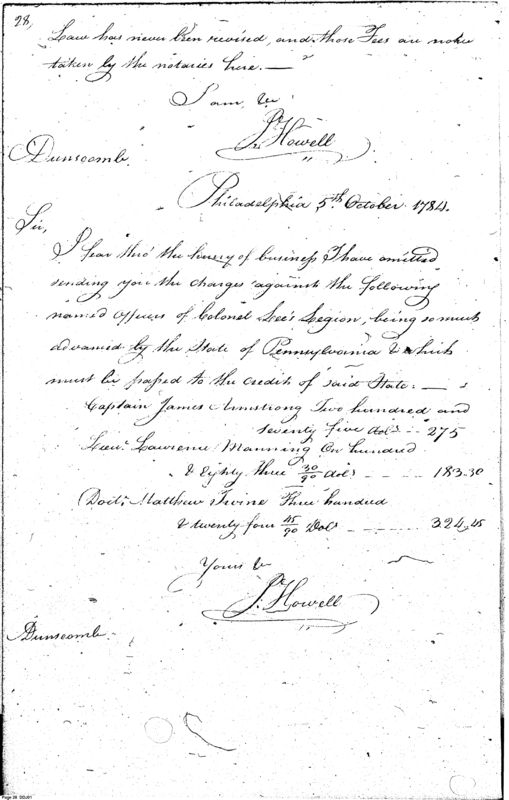 28,
Law has never been revised, and those Fees are now
taken by the notaries here. —
I am, &c
Jos. Howell
Dunscomb.
Philadelphia 5th October 1784.
Sir,
I fear thro' the hurry of business I have omitted
sending you the charges against the following
named officers of Colonel Lee's Legion, being so much
advanced by the State of Pennsylvania & which
must be passed to the credit of said State: —
Captain James Armstrong Two hundred and
seventy five dols -- 275
Lieu. Lawrence Manning On hundred
& Eighty three 30/90 dols ---- 183.30
Doctr. Matthew Irvine Three hundred
& twenty four 45/90 Dols ---- 324.45
Yours &
J. Howell
Dunscomb.
Page 28